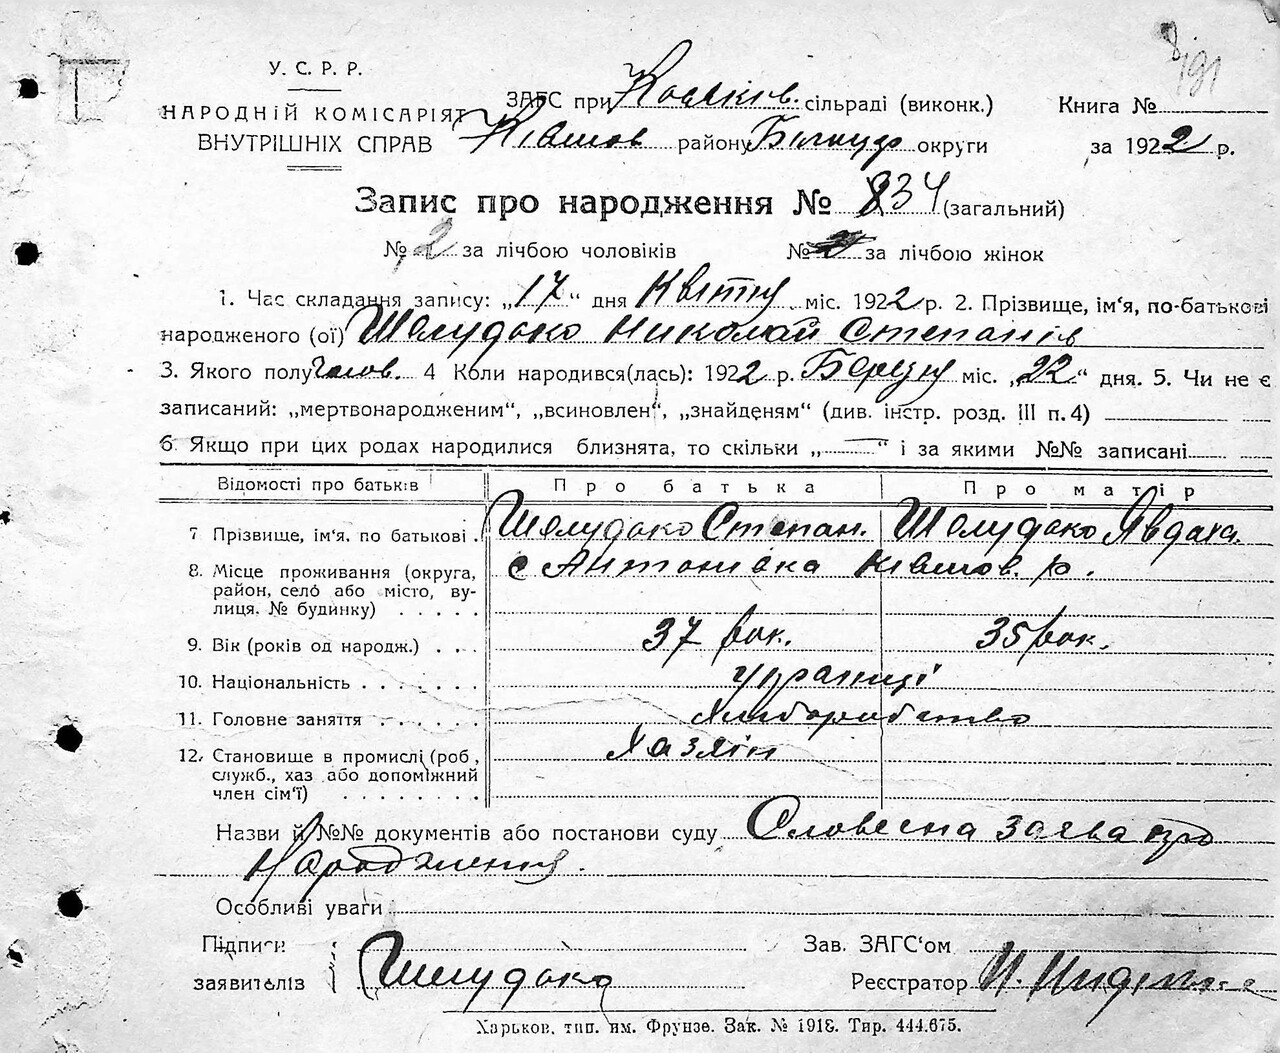 8/191
У. С. Р. Р.
НАРОДНІЙ КОМІСАРІЯТ
ВНУТРІШНІХ СПРАВ
ЗАГС при сільраді (виконк.)
Ківшов району Білоцер округи
Книга №
за 1922 р.
Запис про народження № 834 (загальний)
№ 2 за лічбою чоловіків № за лічбою жінок
1. Час складання запису: „17“ дня Квітня міс. 1922 р. 2. Прізвище, ім'я, по-батькові
народженого (ої) Шелудько Николай Степанів
3. Якого полу Чолов. 4 Коли народився(лась): 1922 р. Березня міс. „22“ дня. 5. Чи не є
записаний: „мертвонародженим“, „всиновлен“, „знайденям“ (див. інстр. розд. III п. 4)
6. Якщо при цих родах народилися близнята, то скільки „—“ і за якими №№ записані
Відомості про батьків Про батька Про матір
7 Прізвище, ім'я, по батькові . Шелудько Степан. Шелудько Явдоха.
8. Місце проживання (округа, с Антонівка Ківшов. р.
район, село або місто, ву-
лиця, № будинку) . . . . .
9. Вік (років од народж.) . . . 37 рок. 35 рок.
10. Національність . . . . . . . українці
11. Головне заняття . . . . . . Хліборобство
12. Становище в промислі (роб, Хазяїн
служб., хаз або допоміжний
член сім'ї) . . . . . . . .
Назви й №№ документів або постанови суду Словесна заява про
народження.
Особливі уваги
Підписи
заявителів Шелудько
Зав. ЗАГС'ом
Реєстратор И.
Харьков, тип. им. Фрунзе. Зак. № 1918. Тир. 444.675.